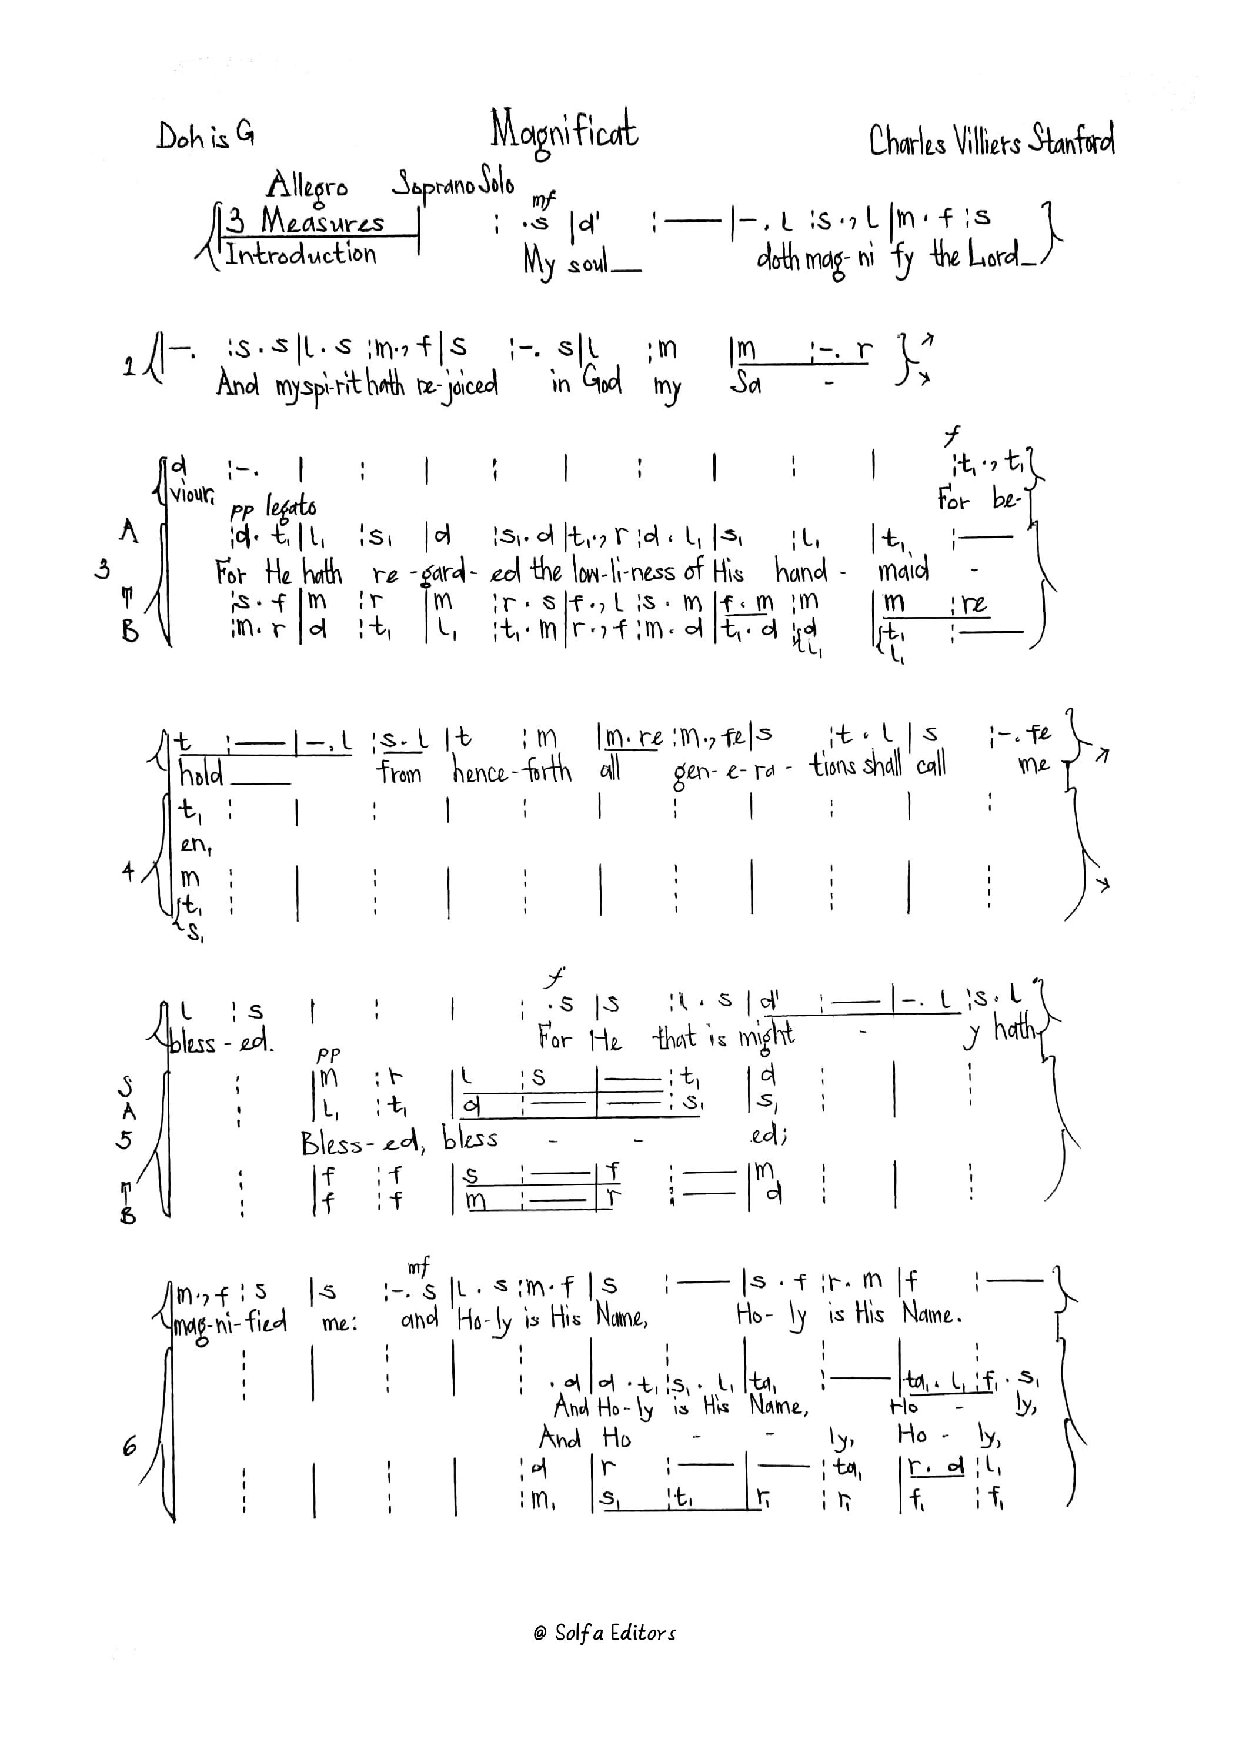 Doh is G Magnificat Charles Villiers Stanford
Allegro Soprano Solo
mf
3 Measures : .s |d' :— |–. l :s ., l |m . f :s
Introduction My soul__ doth mag- ni fy the Lord_
2 |–. :s . s |l . s :m ., f |s :–. s |l :m |m :–. r
And my spi-rit hath re-joiced in God my Sa -
f
d :–. | : | : | : | : | :t₁ ., t₁
viour, For be-
pp legato
A :d . t₁ |l₁ :s₁ |d :s₁ . d |t₁ ., r :d . l₁ |s₁ :l₁ |t₁ :—
3 For He hath re -gard- ed the low-li-ness of His hand - maid -
T :s . f |m :r |m :r . s |f ., l :s . m |f . m :m |m :re
B :m . r |d :t₁ |l₁ :t₁ . m |r ., f :m . d |t₁ . d :d |t₁ :—
l₁ l₁
t :— |–. l :s . l |t :m |m . re :m ., fe |s :t . l |s :–. fe
hold ____ from hence-forth all gen- e-ra - tions shall call me
t₁ : | : | : | : | : | :
en,
4 m : | : | : | : | : | :
t₁ : | : | : | : | : | :
s₁
f
l :s | : | : .s |s :l . s |d' :— |–. l :s . l
bless - ed. For He that is might - y hath
pp
S : |m :r |l :s |— :t₁ |d : | :
A : |l₁ :t₁ |d :— |— :s₁ |s₁ : | :
5 Bless-ed, bless - - ed;
T : |f :f |s :— |f :— |m : | :
B : |f :f |m :— |r :— |d : | :
mf
m ., f :s |s :–. s |l . s :m . f |s :— |s . f :r . m |f :—
mag-ni-fied me: and Ho-ly is His Name, Ho- ly is His Name.
: | : | : . d |d . t₁ :s₁ . l₁ |ta₁ :— |ta₁ . l₁ :f₁ . s₁
And Ho-ly is His Name, Ho - ly,
6 And Ho - - ly, Ho - ly,
: | : | :d |r :— |— :ta₁ |r . d :l₁
: | : | :m₁ |s₁ :t₁ |r₁ :r₁ |f₁ :f₁
@ Solfa Editors